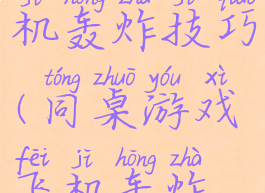 jī hōng zhà jì qiǎo
机轰炸技巧
tóng zhuō yóu xì
(同桌游戏
fēi jī hōng zhà
飞机轰炸